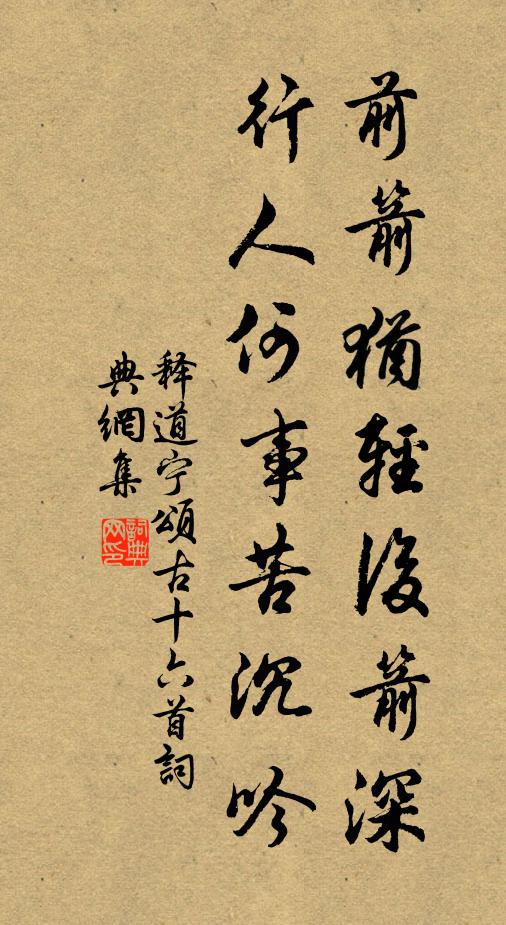 前箭猶輕後箭深
行人何事苦沉吟
释道宁頌古十六首詞
典網集
詞典网印